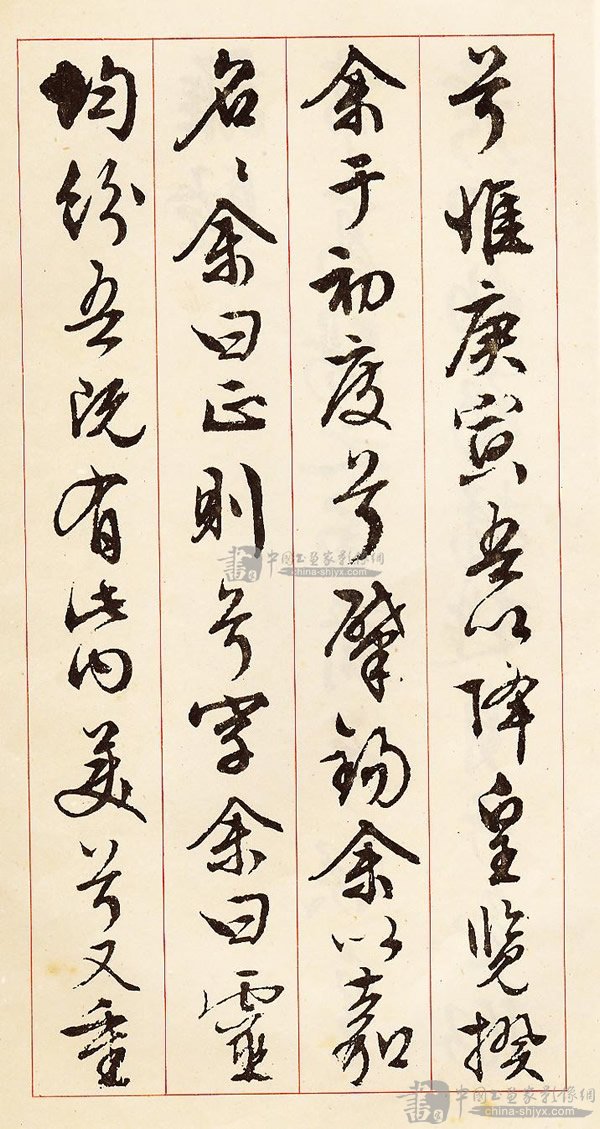 兮惟庚寅吾以降皇覽揆
余于初度兮肇錫余以嘉
名〻余曰正則兮字余曰靈
均紛吾既有此内美兮又重
書 中國书畫家影像網
china-shjyx.com
書 中國书畫家影像網
china-shjyx.com